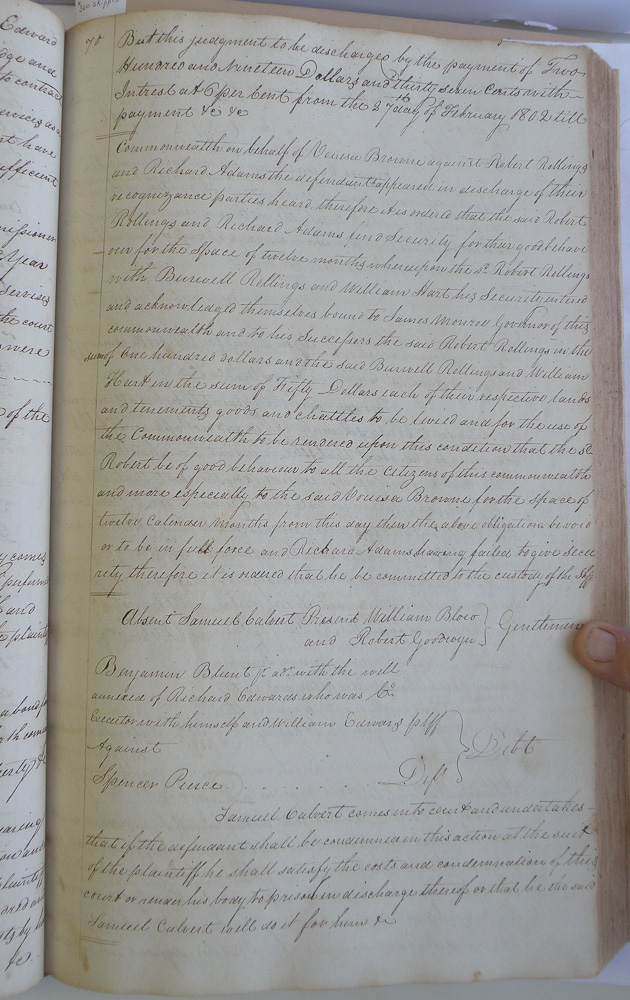 Edward
dge and
to contract
ervices as a
nt have
ufficient
missioner
Year
Services
the court
were
of the
y comes
perform
and
plainti
78
But this judgment to be discharged by the payment of Two
Hundred and Nineteen Dollars and thirty seven Cents with
Intrest at 6 per Cent from the 27th day of February 1802 till
payment &c &c
Commonwealth on behalf of Vouisa Browne against Robert Rollings
and Richard Adams the defendants appeared in discharge of their
recognizance parties heard therefore its ordered that the said Robert
Rollings and Richard Adams find Security for their good behave
our for the Space of twelve months whereupon the sd. Robert Rollings
with Burwell Rollings and William Hart his Security entered
and acknowledged themselves bound to James Monroe Govenor of this
commonwealth and to his Successors the said Robert Rollings in the
sum of One hundred dollars and the said Burwell Rollings and William
Hart in the sum of Fifty Dollars each of their respective lands
and tenements goods and chattles to be levied and for the use of
the Commonwealth to be rendered upon this condition that the sd
Robert be of good behaviour to all the Citizens of this commonwealth
and more especially to the said Vouisa Browne for the space of
twelve Calender Months from this day then the above obligation be void
or to be in full force and Richard Adams having failed to give Secu
rity therefore it is ordered that he be committed to the custody of the Shff
Absent Samuel Calvert Present William Blow
and Robert Goodwyn } Gentlemen
Benjamin Blunt jr. adr. with the will
annexed of Richard Edwards who was
Executor with himself and William Edwards plff
Against } Debt
Spencer Pierce Deft
Samuel Calvert comes into court and undertakes
that if the defendant shall be condemned in this action at the suit
of the plaintiff he shall satisfy the costs and condemnation of this
court or render his body to prison in discharge thereof or that he the said
Samuel Calvert will do it for him &c